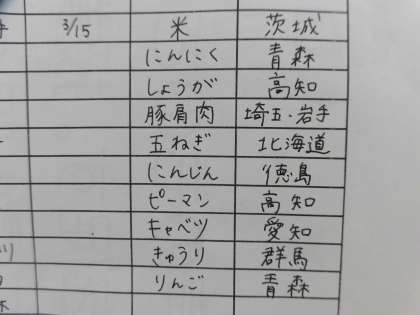 3/15 米 茨城
にんにく 青森
しょうが 高知
豚肩肉 埼玉・岩手
五ねぎ 北海道
にんじん 徳島
ピーマン 高知
キャベツ 愛知
きゅうり 群馬
りんご 青森